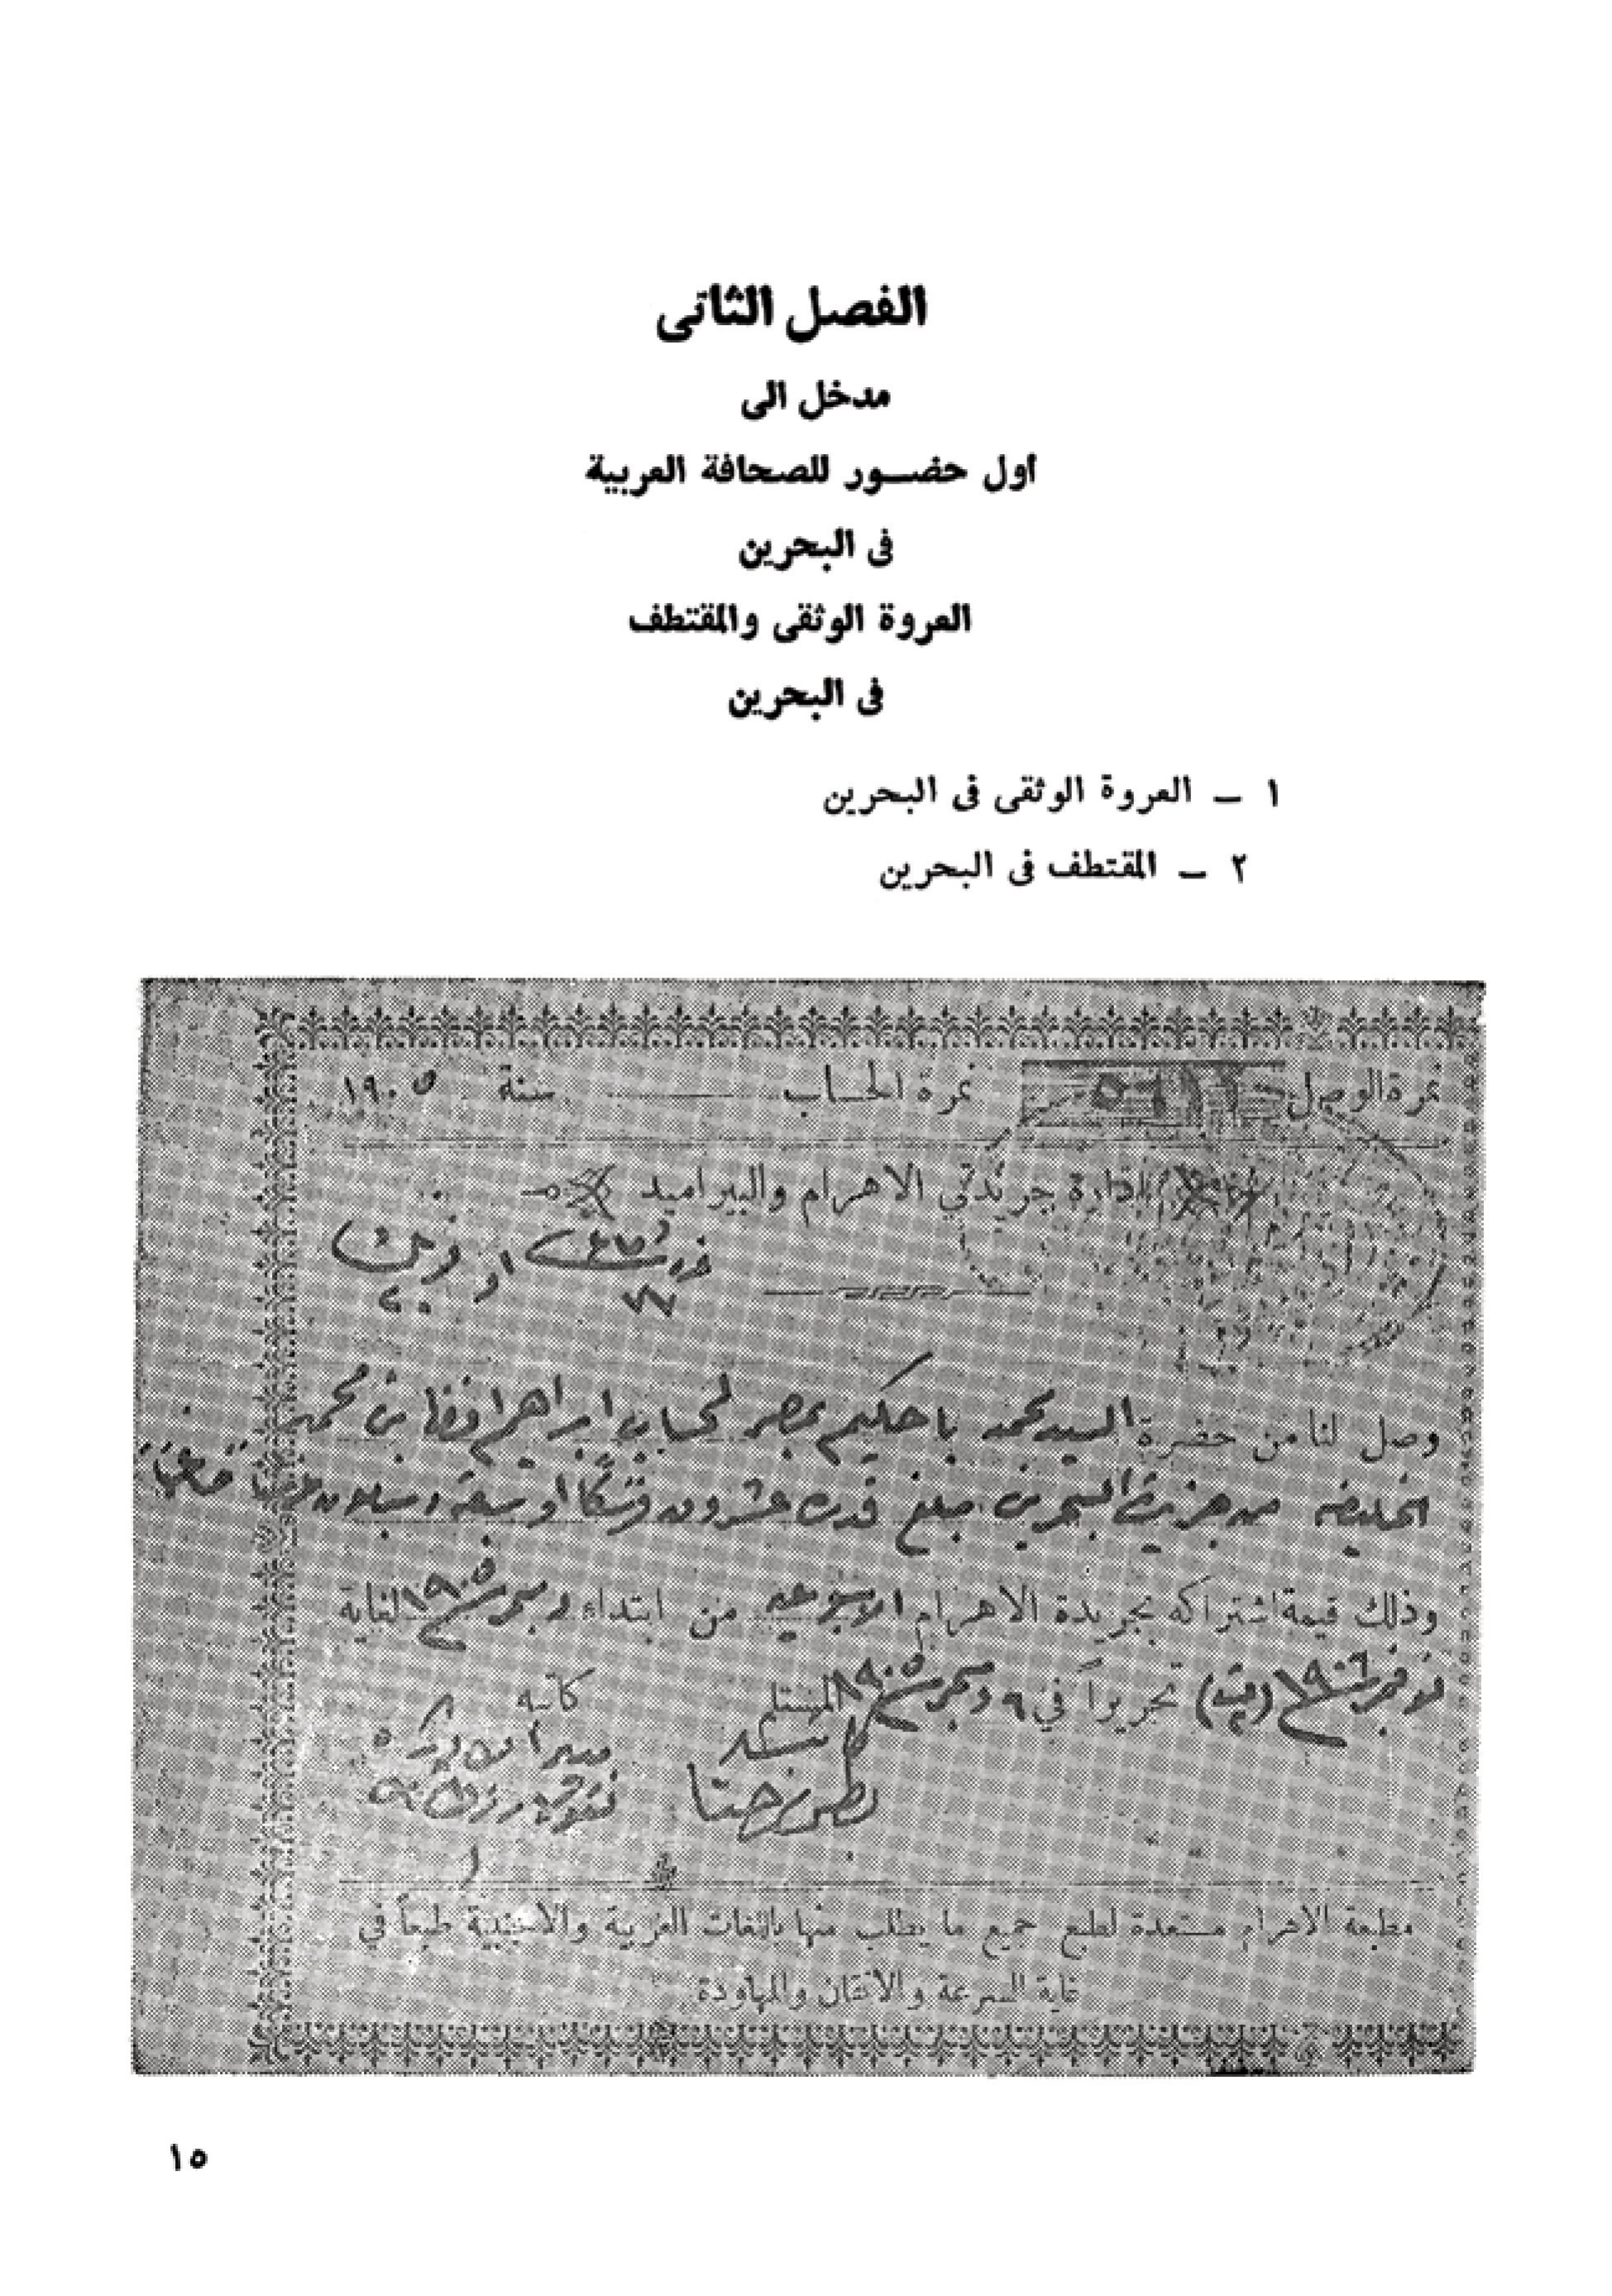 الفصل الثانى
مدخل الى
اول حضور للصحافة العربية
فى البحرين
العروة الوثقى والمقتطف
فى البحرين
١ ــ العروة الوثقى فى البحرين
٢ ــ المقتطف فى البحرين
نمرة الوصل نمرة الحساب سنة ١٩٠٥
ادارة جريدتي الاهرام والبيراميد
وصل لنا من حضرة السيد محمد باحكيم بمصر لحساب ابراهيم بن محمد
الخليفه من جزيرة البحرين مبلغ قدره عشرون فرنكا
وذلك قيمة اشتراكه بجريدة الاهرام الاسبوعيه من ابتداء دسمبر ١٩٠٥ لغاية
نوفمبر ١٩٠٦ تحريراً في ٦ دسمبر ١٩٠٥ المستلم كاتبه
مطبعة الاهرام مستعدة لطبع جميع ما يطلب منها باللغات العربية والاجنبية طبعاً في
غاية السرعة والاتقان والمهاودة
١٥